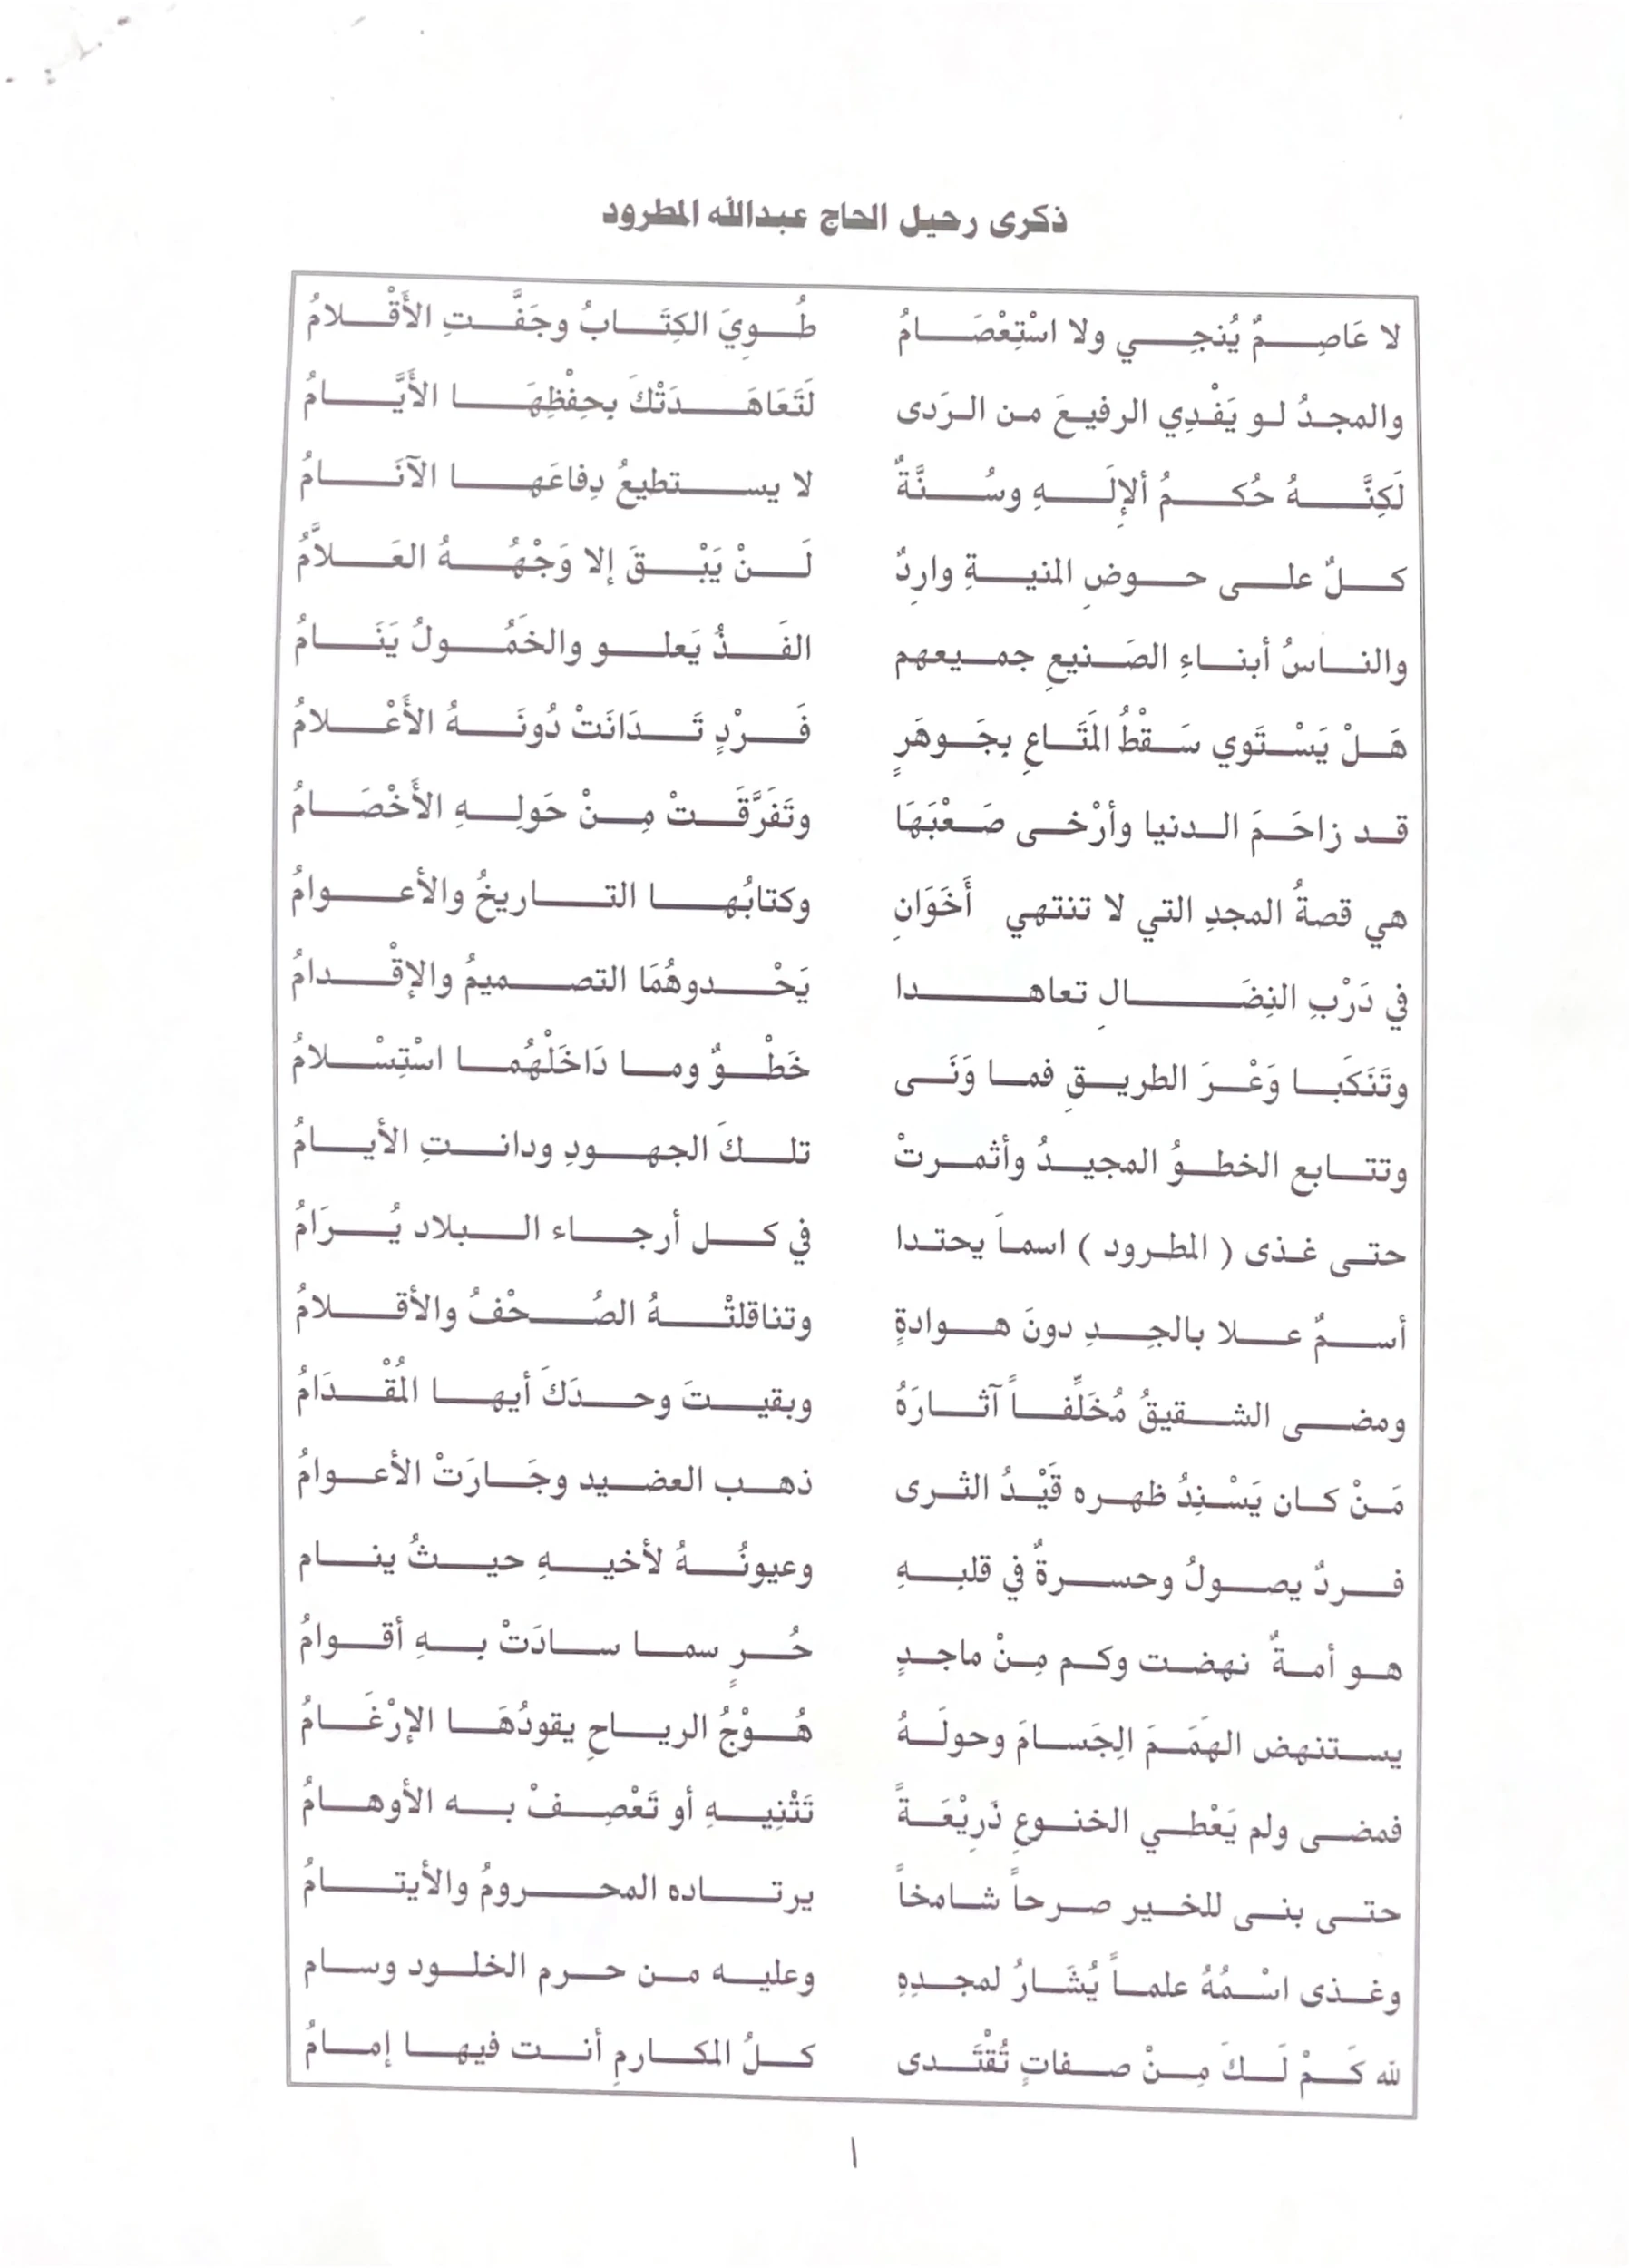 ذكرى رحيل الحاج عبدالله المطرود
لا عَاصِمٌ يُنجي ولا اسْتِعْصَامُ طُوِيَ الكِتَابُ وجَفَّتِ الأَقْلامُ
والمجدُ لو يَفْدِي الرفيعَ من الرَدى لَتَعَاهَدَتْكَ بحِفْظِهَا الأَيَّامُ
لَكِنَّهُ حُكمُ ألإِلَهِ وسُنَّةٌ لا يستطيعُ دِفاعَها الآنَامُ
كلٌ على حوضِ المنيةِ وارِدٌ لَنْ يَبْقَ إلا وَجْهُهُ العَلاَّمُ
والناسُ أبناءِ الصَنيعِ جميعهم الفَذُ يَعلو والخَمُولُ يَنَامُ
هَلْ يَسْتَوي سَقْطُ المَتَاعِ بجَوهَرٍ فَرْدٍ تَدَانَتْ دُونَهُ الأَعْلامُ
قد زاحَمَ الدنيا وأرْخى صَعْبَهَا وتَفَرَّقَتْ مِنْ حَولِهِ الأَخْصَامُ
هي قصةُ المجدِ التي لا تنتهي أَخَوَانِ وكتابُها التاريخُ والأعوامُ
في دَرْبِ النِضَالِ تعاهدا يَحْدوهُمَا التصميمُ والإقْدامُ
وتَنَكَبا وَعْرَ الطريقِ فما وَنَى خَطْوٌ وما دَاخَلْهُما اسْتِسْلامُ
وتتابع الخطوُ المجيدُ وأثمرتْ تلكَ الجهودِ ودانتِ الأيامُ
حتى غذى ( المطرود ) اسماَ يحتدا في كل أرجاء البلاد يُرَامُ
أسمٌ علا بالجِدِ دونَ هوادةٍ وتناقلتْهُ الصُحْفُ والأقلامُ
ومضى الشقيقُ مُخَلِّفاً آثارَهُ وبقيتَ وحدَكَ أيها المُقْدَامُ
مَنْ كان يَسْنِدُ ظهره قَيْدُ الثرى ذهب العضيد وجَارَتْ الأعوامُ
فردٌ يصولُ وحسرةٌ في قلبهِ وعيونُهُ لأخيهِ حيثُ ينام
هو أمةٌ نهضت وكم مِنْ ماجدٍ حُرٍ سما سادَتْ بهِ أقوامُ
يستنهض الهمَمَ الِجَسامَ وحولَهُ هُوْجُ الرياحِ يقودُهَا الإرْغَامُ
فمضى ولم يَعْطي الخنوعِ ذَرِيْعَةً تَثْنِيهِ أو تَعْصِفْ به الأوهامُ
حتى بنى للخير صرحاً شامخاً يرتاده المحرومُ والأيتامُ
وغذى اسْمُهُ علماً يُشَارُ لمجدِهِ وعليه من حرم الخلود وسام
لله كَمْ لَكَ مِنْ صفاتٍ تُقْتَدى كلُ المكارمِ أنت فيها إمامُ
١